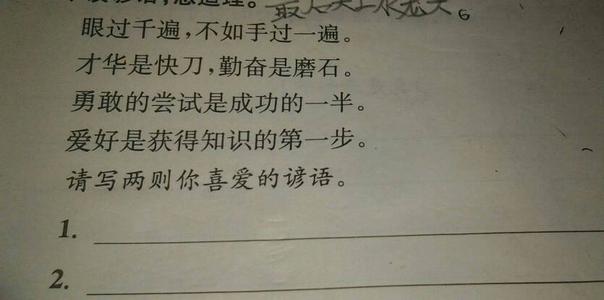 悟道理。
眼过千遍，不如手过一遍。
才华是快刀，勤奋是磨石。
勇敢的尝试是成功的一半。
爱好是获得知识的第一步。
请写两则你喜爱的谚语。
1.
2.